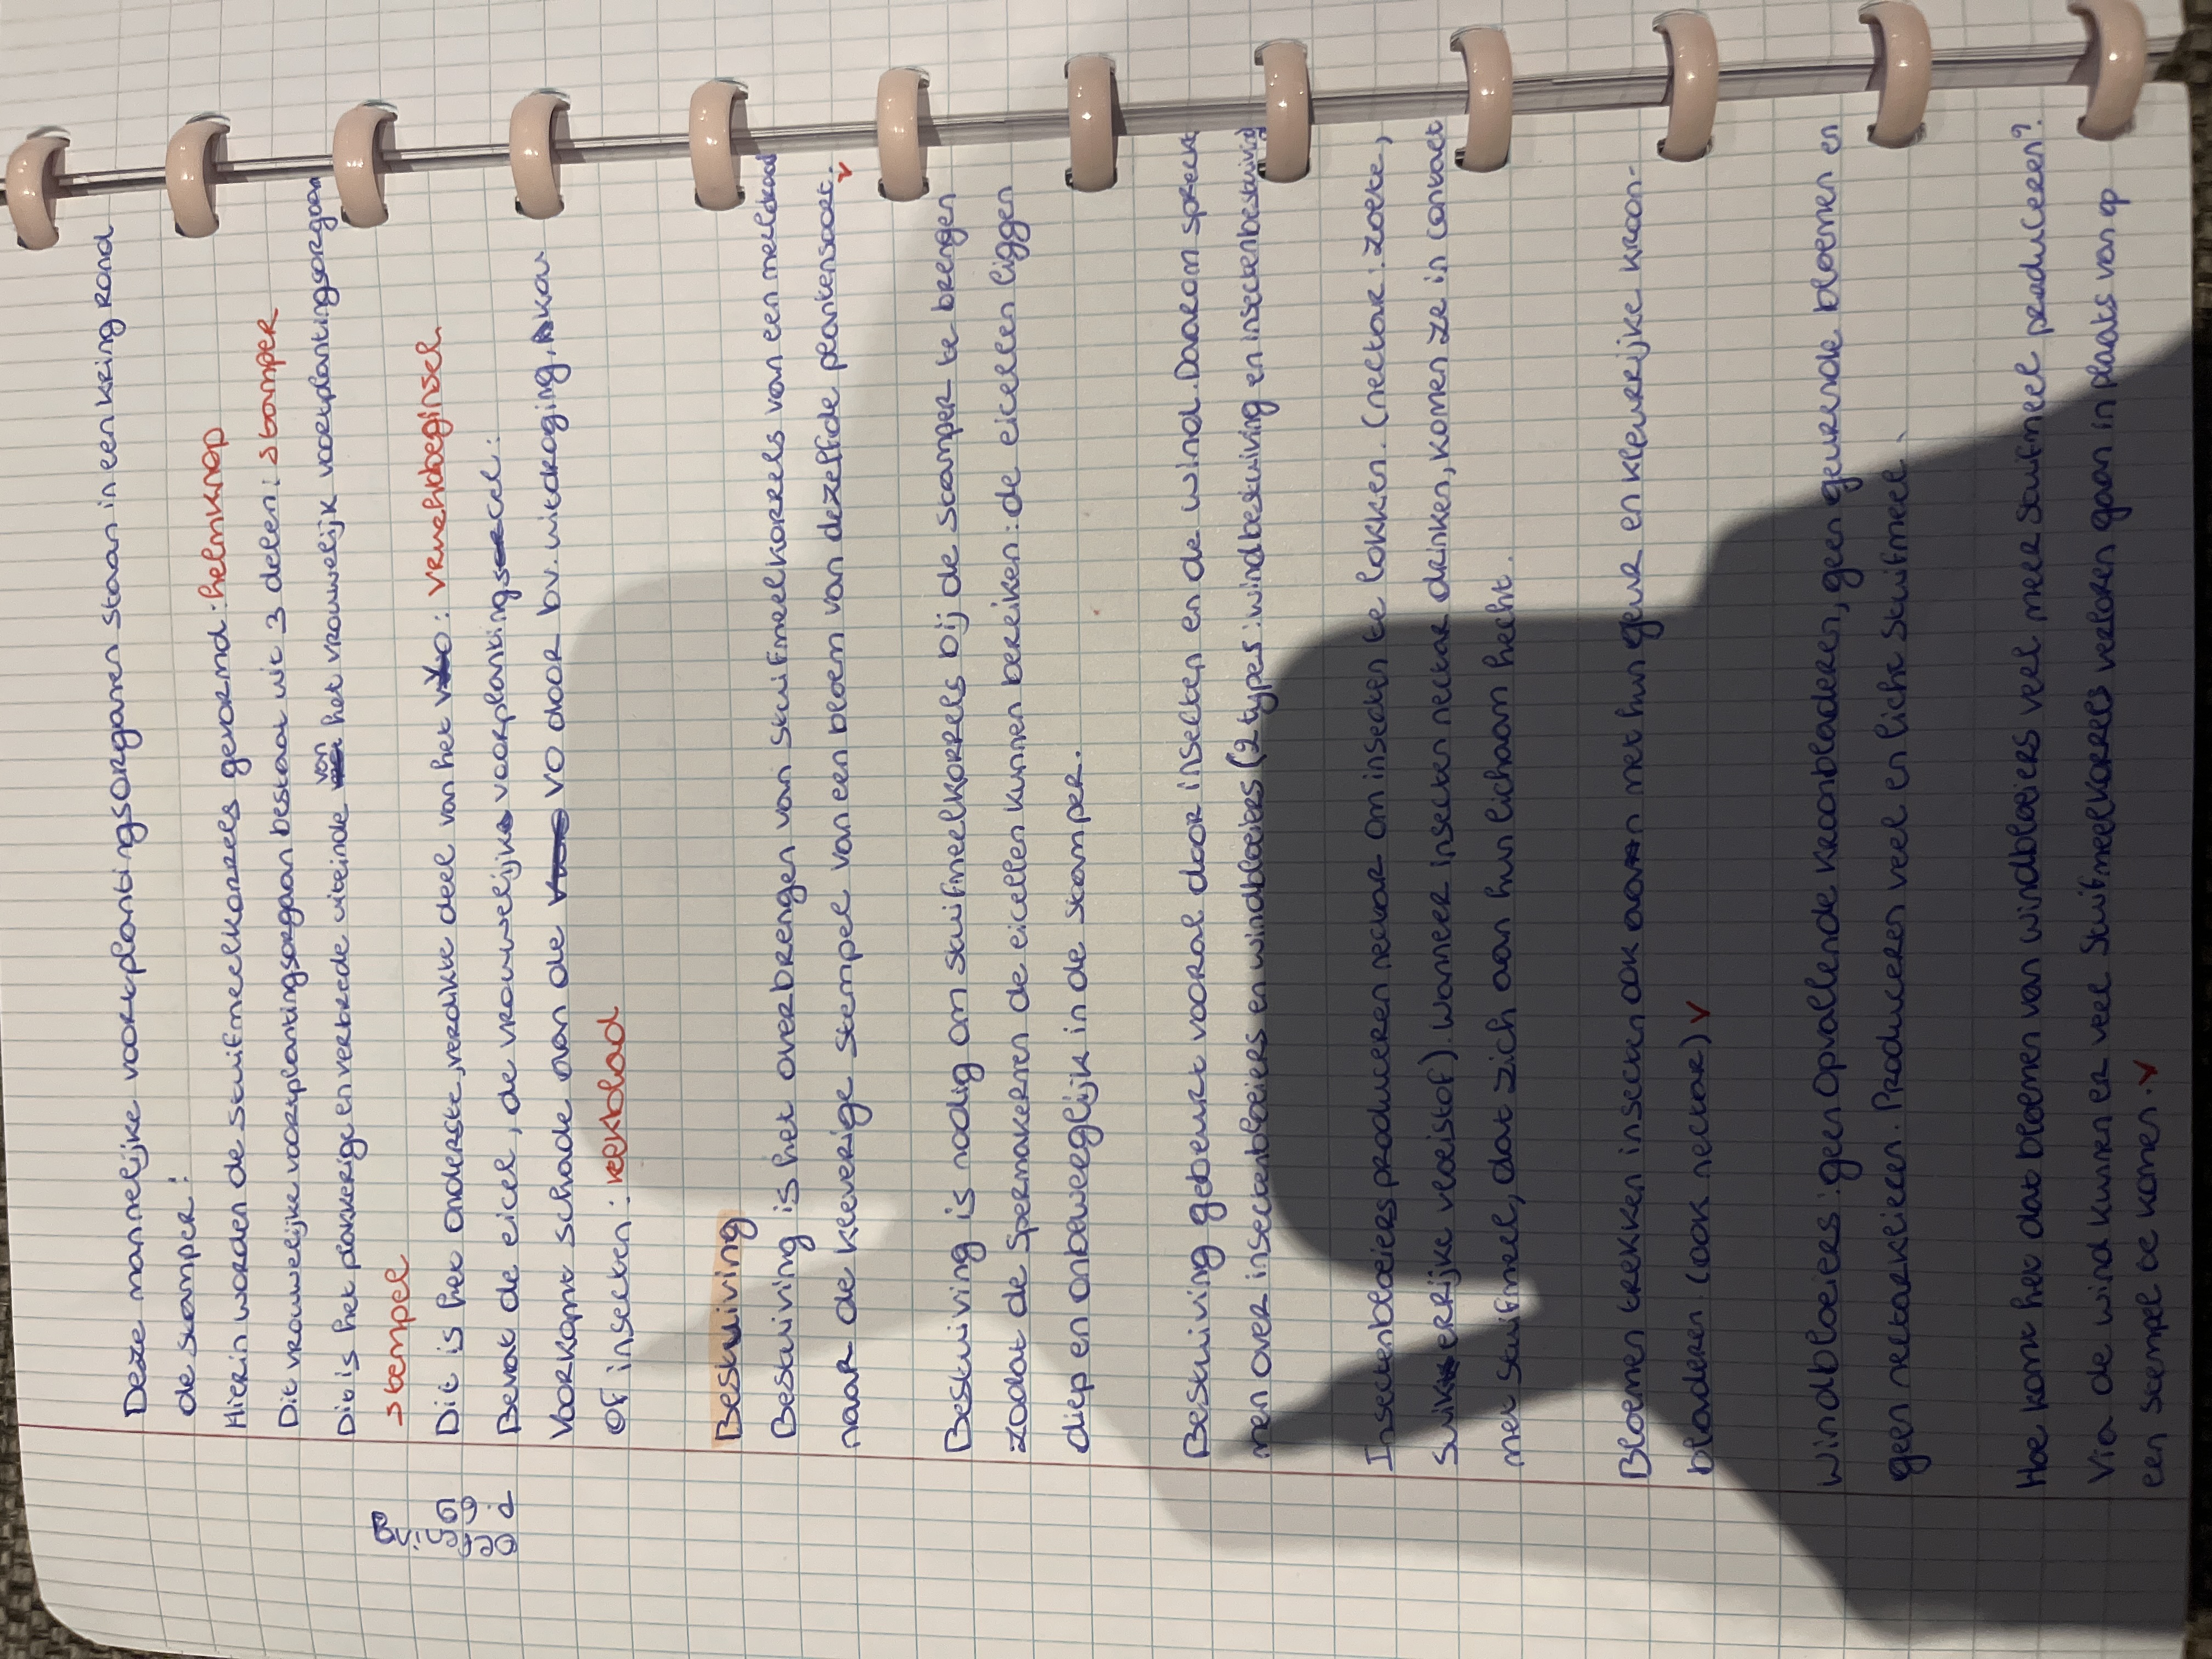 Deze mannelijke voortplantingsorganen staan in een kring rond
de stamper:
Hierin worden de stuifmeelkorrels gevormd: helmknop
Dit vrouwelijke voortplantingsorgaan bestaat uit 3 delen: stamper
Dit is het plakkerige en verbrede uiteinde van het vrouwelijk voortplantingsorgaan
→ stempel
Dit is het onderste, verdikte deel van het vo: vruchtbeginsel
Bevat de eicel, de vrouwelijke voortplantingscel:
Voorkomt schade aan de VO door bv. uitdroging, kou
of insecten: kelkblad
Bestuiving
Bestuiving is het overbrengen van stuifmeelkorrels van een meeldraad
naar de kleverige stempel van een bloem van dezelfde plantensoort. v
Bestuiving is nodig om stuifmeelkorrels bij de stamper te brengen
zodat de spermakernen de eicellen kunnen bereiken: de eicellen liggen
diep en onbeweeglijk in de stamper.
Bestuiving gebeurt vooral door insecten en de wind. Daarom spreekt
men over insectenbloeiers en windbloeiers (2 types: windbestuiving en insectenbestuiving
Insectenbloeiers produceren nectar om insecten te lokken. (nectar: zoete,
suikerrijke vloeistof). wanneer insecten nectar drinken, komen ze in contact
met stuifmeel, dat zich aan hun lichaam hecht.
Bloemen trekken insecten ook aan met hun geur en kleurrijke kroon-
bladeren. (ook nectar) v
Windbloeiers: geen opvallende kroonbladeren, geen geurende bloemen en
geen nectarklieren. Produceren veel en licht stuifmeel.
Hoe komt het dat bloemen van windbloeiers veel meer stuifmeel produceren?
Via de wind kunnen er veel stuifmeelkorrels verloren gaan in plaats van op
een stempel te komen. v